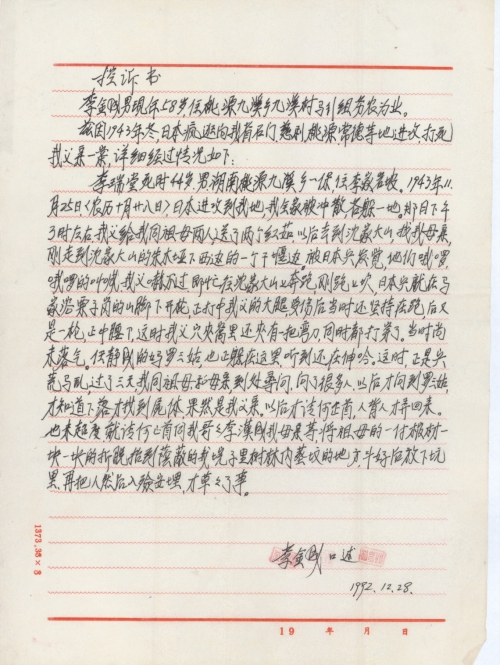 控诉书
李金贱男现年58岁住桃源九溪乡九溪村 组务农为业。
兹因1943年冬日本疯逃向我省石门,慈利桃源常德等地进攻,打死
我父亲一案,详细经过情况如下:
李瑞堂死时44岁,男湖南桃源九溪乡一保,住李家岩坡。1943年11
月25日(农历十月廿八日)日本进攻到我地,我全家被冲散,各躲一地。那日下午
3时左右,我父给我同祖母两人送了两个红茹以后去到沈家大山,找我母亲,
刚走到沈家大山的 水垭下西边的一丁干堰边。被日本兵察觉,他们哦喂
哦喂的叫喊,我父 不过即忙在沈家大山上奔跑,刚跑上 ,日本兵就在马
家沿栗子岗的山脚下开枪,正打中我父的大腿负伤后当时还坚持在跑后又
是一枪,正中腰下,这时我父 夹窝里还夹有一把弯刀,同时都打 了。当时尚
未落气。伍静贱的妈罗三姑,也正躲在这里听到还在伸吟。这时,正是兵
荒马乱,过了三天我同祖母和母亲到处寻问,问了很多人,以后才问到罗三姑,
才知道下落才找到尸体,果然是我父亲,以后才请何上首,人背人才弄回来。
也未超度就请何上首同我哥哥李汉贱我母亲等,将祖母的一付棺材一
块一块的折脱抬到荫蔽的我 子里树林内葬坟的地方,斗好后放下坑
里,再把人然后入殓安埋,才草草了事。
李金贱 口述
1992.12.28.
1373.38×8
19 年 月 日